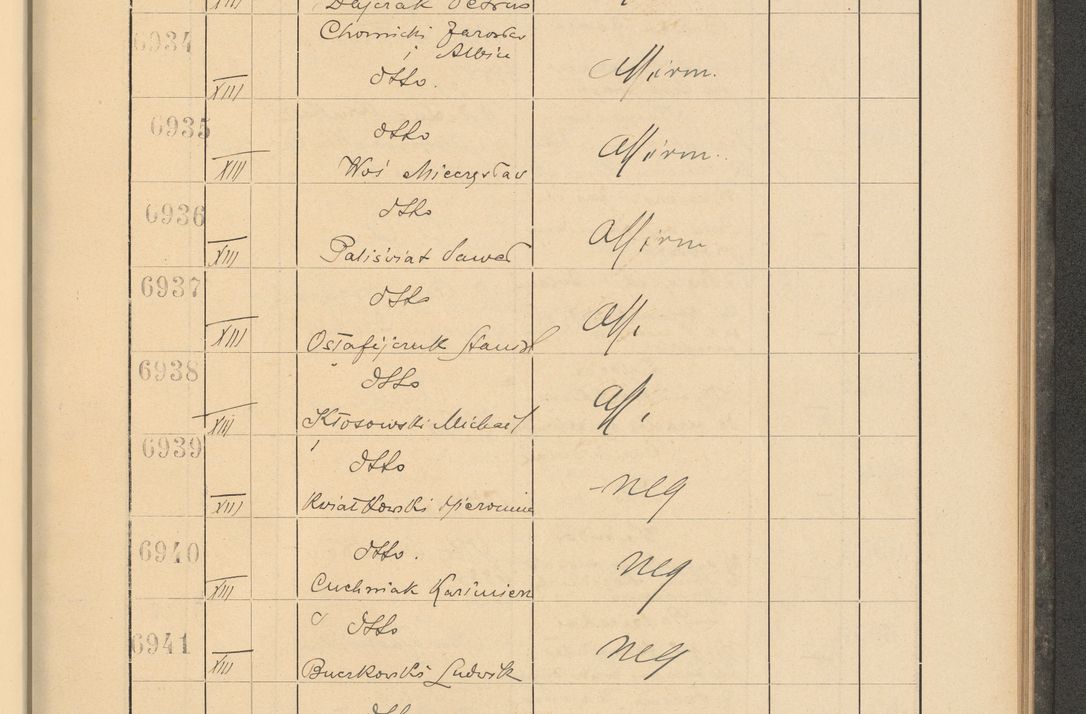 XIII Dajczak Petrus
6934 Chomicki Jarosław
i Albin
XIII dtto. Affirm.
6935 dtto
XIII Woś Mieczysław Affirm.
6936 dtto
XIII Paliświat Paweł Affirm
6937 dtto
XIII Ostafijczuk Stanisł Aff.
6938 dtto
XIII Kłosowski Michael Aff.
6939 dtto
XIII Kwiatkowski Hieronim neg
6940 dtto.
XIII Cuchniak Kazimierz neg
6941 dtto
XIII Buczkowski Ludwik neg